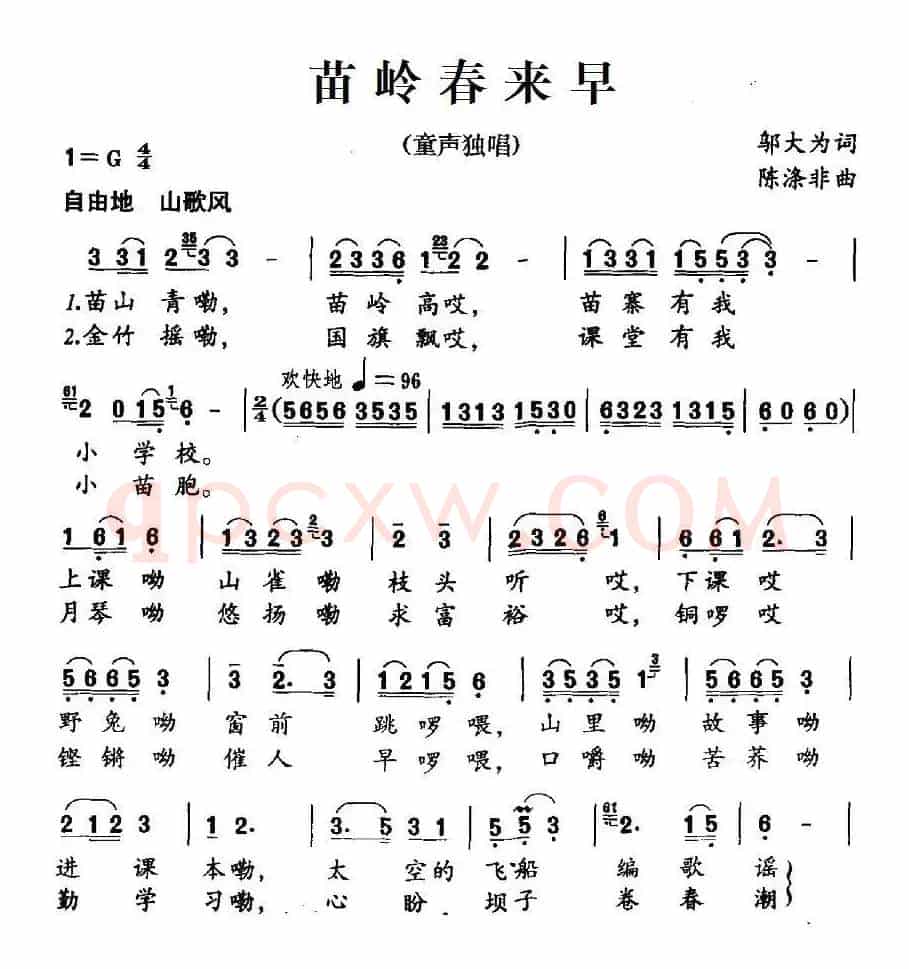 苗岭春来早
(童声独唱)
1=G 4/4
邬大为词
陈涤非曲
自由地 山歌风
3 331 2 35 3 3 - | 2336 1 23 2 2 - | 1331 1553 3 - |
1.苗山 青嘞, 苗岭 高哎, 苗寨有我
2.金竹 摇嘞, 国旗 飘哎, 课堂有我
欢快地 ♩=96
61 2 0 15 1 6 - | 2/4 (5656 3535 | 1313 1530 | 6323 1315 | 6060) |
小学校。
小苗胞。
qpcxw.COM
1 61 6 | 1323 2 3 | 2 3 | 2326 6 1 | 661 2. 3 |
上课呦 山雀嘞 枝头 听 哎, 下课哎
月琴呦 悠扬嘞 求富 裕 哎, 铜啰哎
5665 3 | 3 2. 3 | 1215 6 | 3535 1 3 | 5665 3 |
野兔呦 窗前 跳啰喂, 山里呦 故事呦
铿锵呦 催人 早啰喂, 口嚼呦 苦荞呦
2 12 3 | 1 2. | 3. 5 3 1 | 5 5 3 | 61 2. 15 | 6 - |
进课本嘞, 太空的飞船 编歌谣
勤学习嘞, 心盼坝子 卷春潮